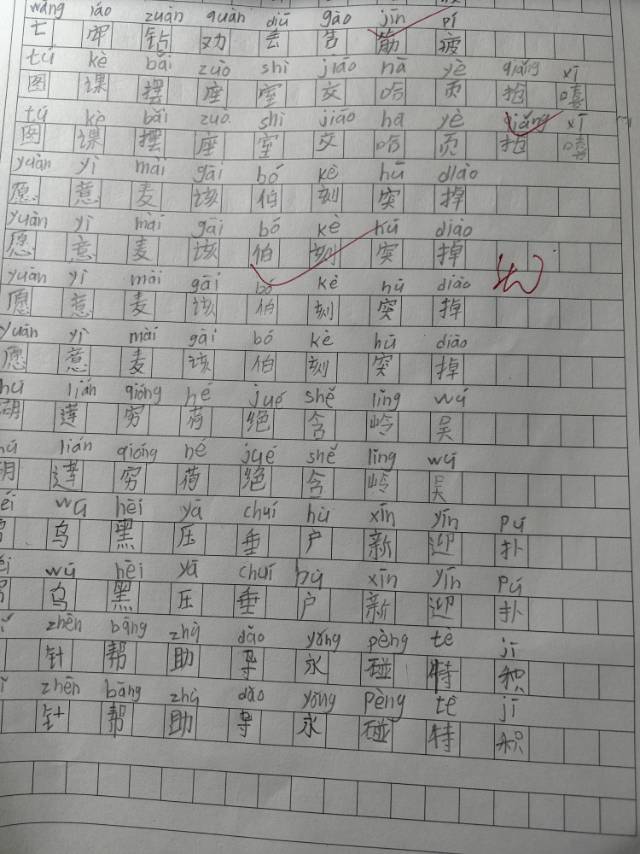 wáng zuàn quàn diū gào jīn pí
亡 钻 劝 丢 告 筋 疲
tú kè bǎi zuò shì jiāo hā yè qiǎng xī
图 课 摆 座 室 交 哈 页 抢 嘻
tú kè bǎi zuò shì jiāo hā yè qiǎng xī
图 课 摆 座 室 交 哈 页 抢 嘻
yuàn yì mài gāi bó kè hū diào
愿 意 麦 该 伯 刻 突 掉
yuàn yì mài gāi bó kè hū diào
愿 意 麦 该 伯 刻 突 掉
yuàn yì mài gāi bó kè hū diào
愿 意 麦 该 伯 刻 突 掉
yuàn yì mài gāi bó kè hū diào
愿 意 麦 该 伯 刻 突 掉
hú lián qióng hé jué shě lǐng wú
湖 莲 穷 荷 绝 含 岭 吴
hú lián qióng hé jué shě lǐng wú
湖 莲 穷 荷 绝 含 岭 吴
wū hēi yā chuí hù xīn yín pū
乌 黑 压 垂 户 新 迎 扑
wū hēi yā chuí hù xīn yín pū
乌 黑 压 垂 户 新 迎 扑
zhēn bāng zhù dǎo yǒng pèng tè jī
针 帮 助 导 永 碰 特 积
zhēn bāng zhù dǎo yǒng pèng tè jī
针 帮 助 导 永 碰 特 积